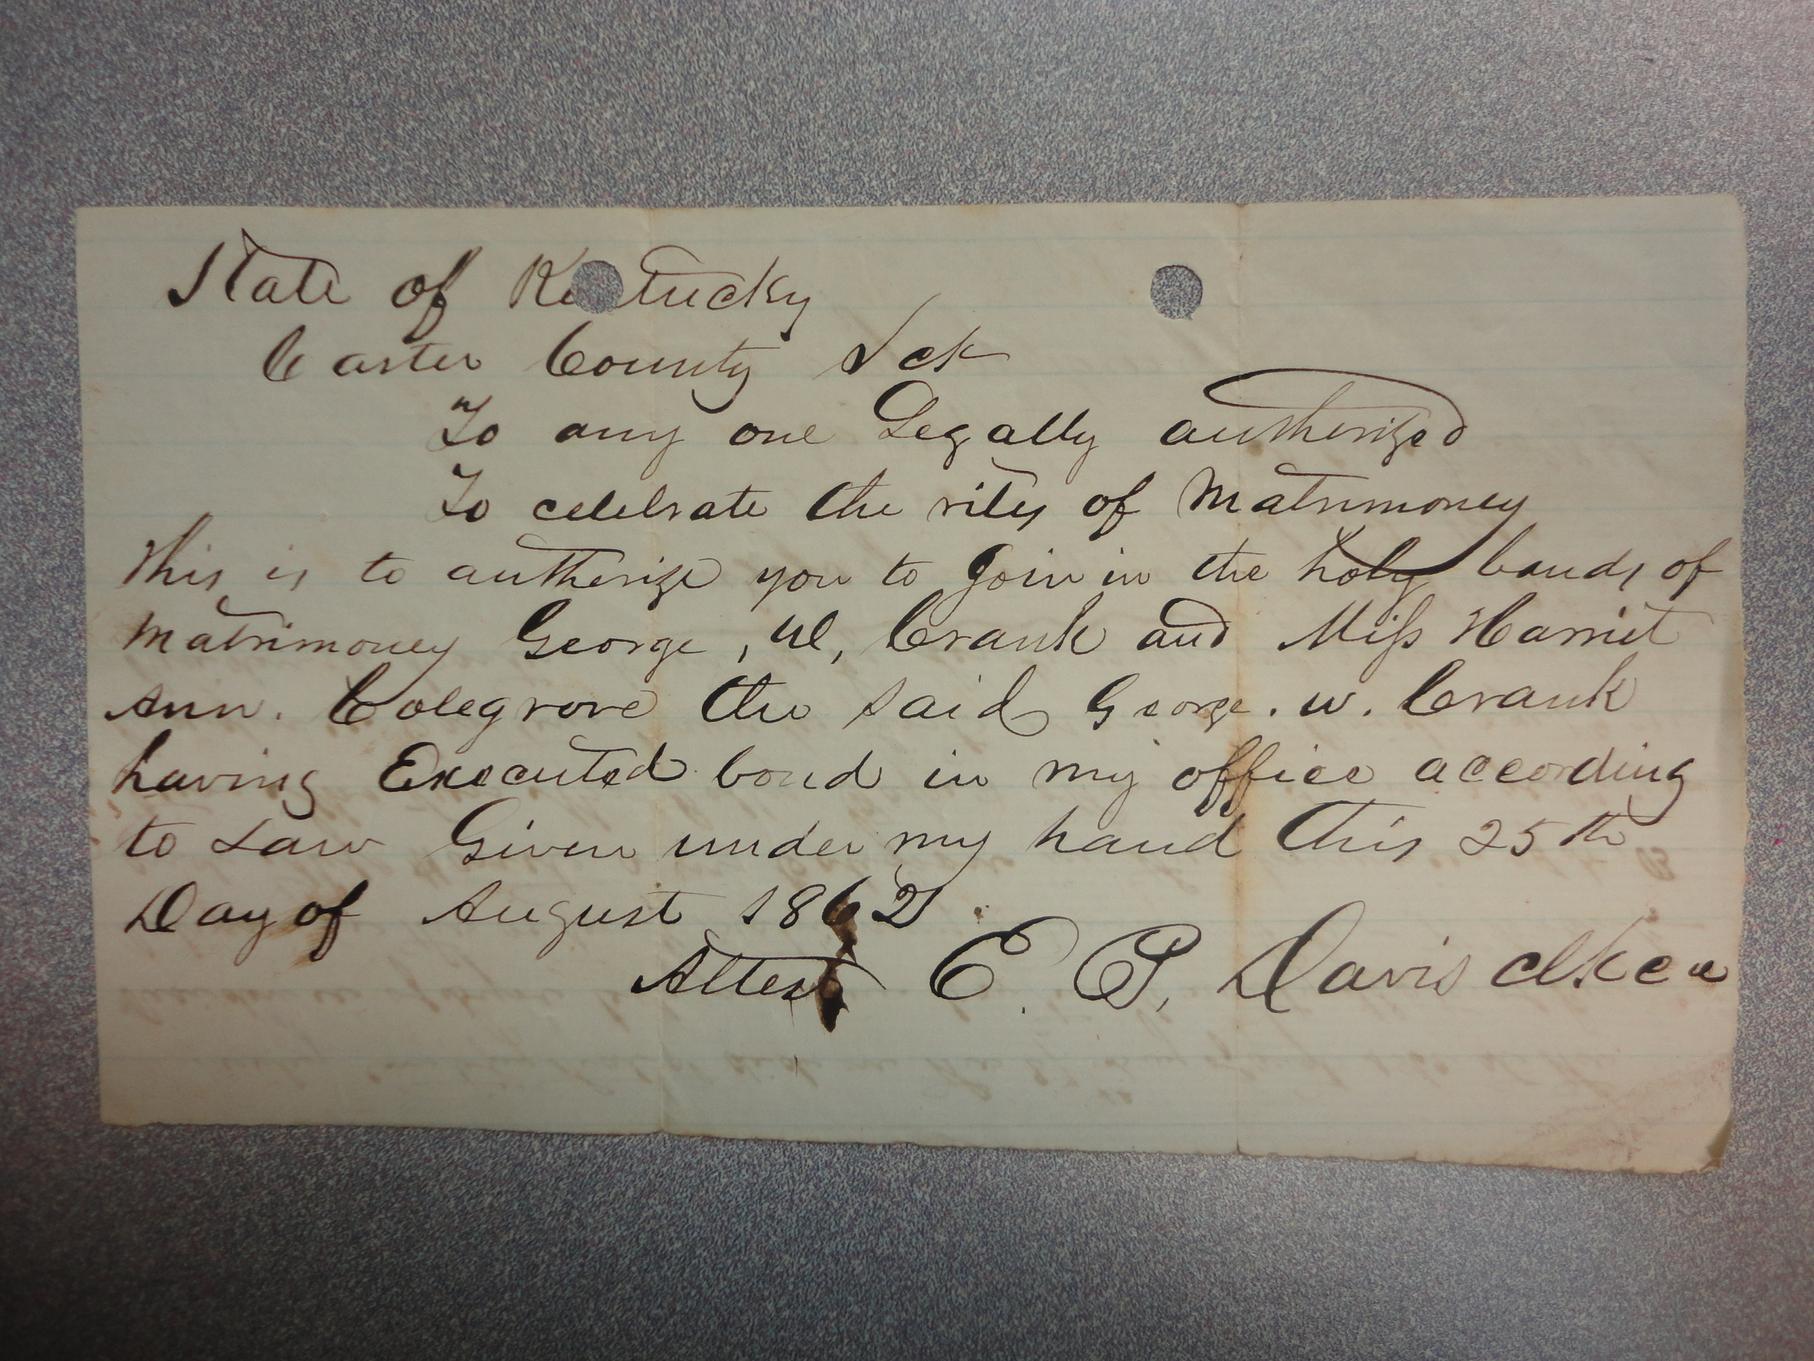 State of Kentucky
Carter County Sct
To any one Legally authorized
To celebrate the rites of Matrimoney
This is to authorize you to Join in the holy bands of
Matrimoney George, W, Crank and Miss Harriet
Ann. Colegrove the said George. W. Crank
having Executed bond in my office according
to Law Given under my hand this 25th
Day of August 1862
Attest E. P. Davis clk c c